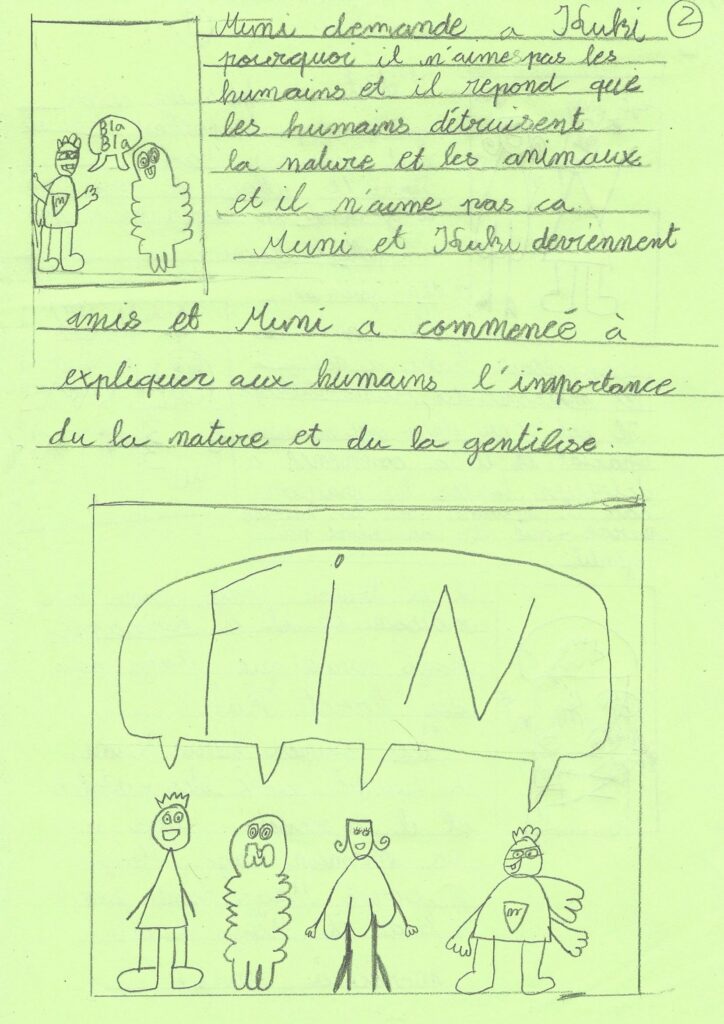 Muni demande a Kuki
2
pourquoi il n'aime pas les
humains et il repond que
les humains détruisent
la nature et les animaux
et il n'aime pas ca
Muni et Kuki deviennent
amis et Muni a commencé à
expliquer aux humains l'importance
du la nature et du la gentilise.
Bla
Bla
M
FiN
M